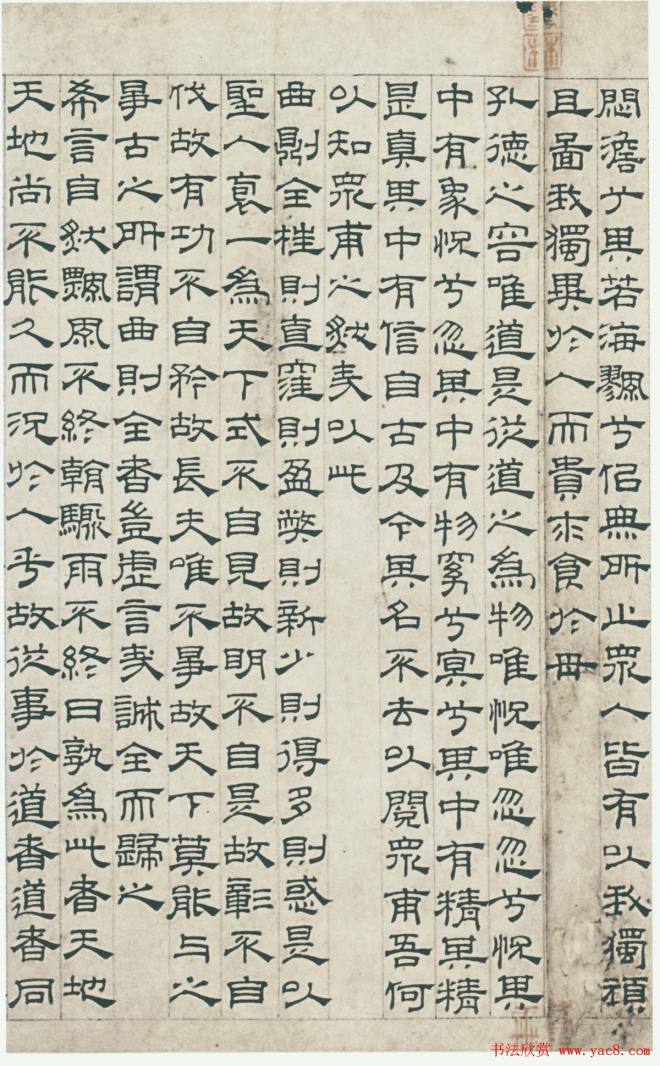 悶澹兮其若海飄兮佀無所止眾人皆有以我獨頑
且啚我獨異於人而貴求食於母
孔德之容唯道是從道之為物唯怳唯忽忽兮怳其
中有象怳兮忽其中有物窈兮冥兮其中有精其精
甚真其中有信自古及今其名不去以閱眾甫吾何
以知眾甫之然哉以此
曲則全枉則直窪則盈弊則新少則得多則惑是以
聖人袌一為天下式不自見故明不自是故彰不自
伐故有功不自矜故長夫唯不爭故天下莫能与之
爭古之所謂曲則全者豈虛言哉誠全而歸之
希言自然飄風不終朝驟雨不終日孰為此者天地
天地尚不能久而況於人乎故從事於道者道者同
书法欣赏 www.yac8.com